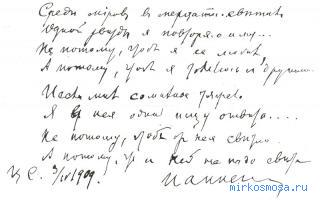 Среди мiров, в мерцанiи светил
Одной звезды я повторяю имя...
Не потому, чтоб я ее любил
А потому, что я томлюсь с другими.
мне сомненье тяжело
Я у нея одной ищу ответа....
Не потому, что от нея светло
А потому, что с ней не надо света
Ц. С. 3/IV 1909.
mirkosmosa.ru